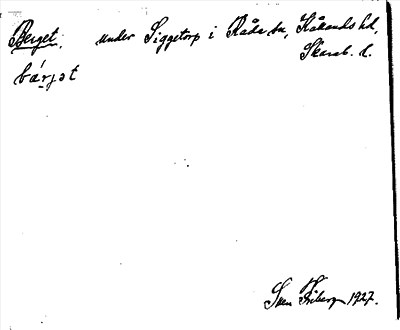 Berget, under Siggetorp i Råda sn, Kållands hd,
Skarab. l.
bárjat
Sven Friberg 1927.